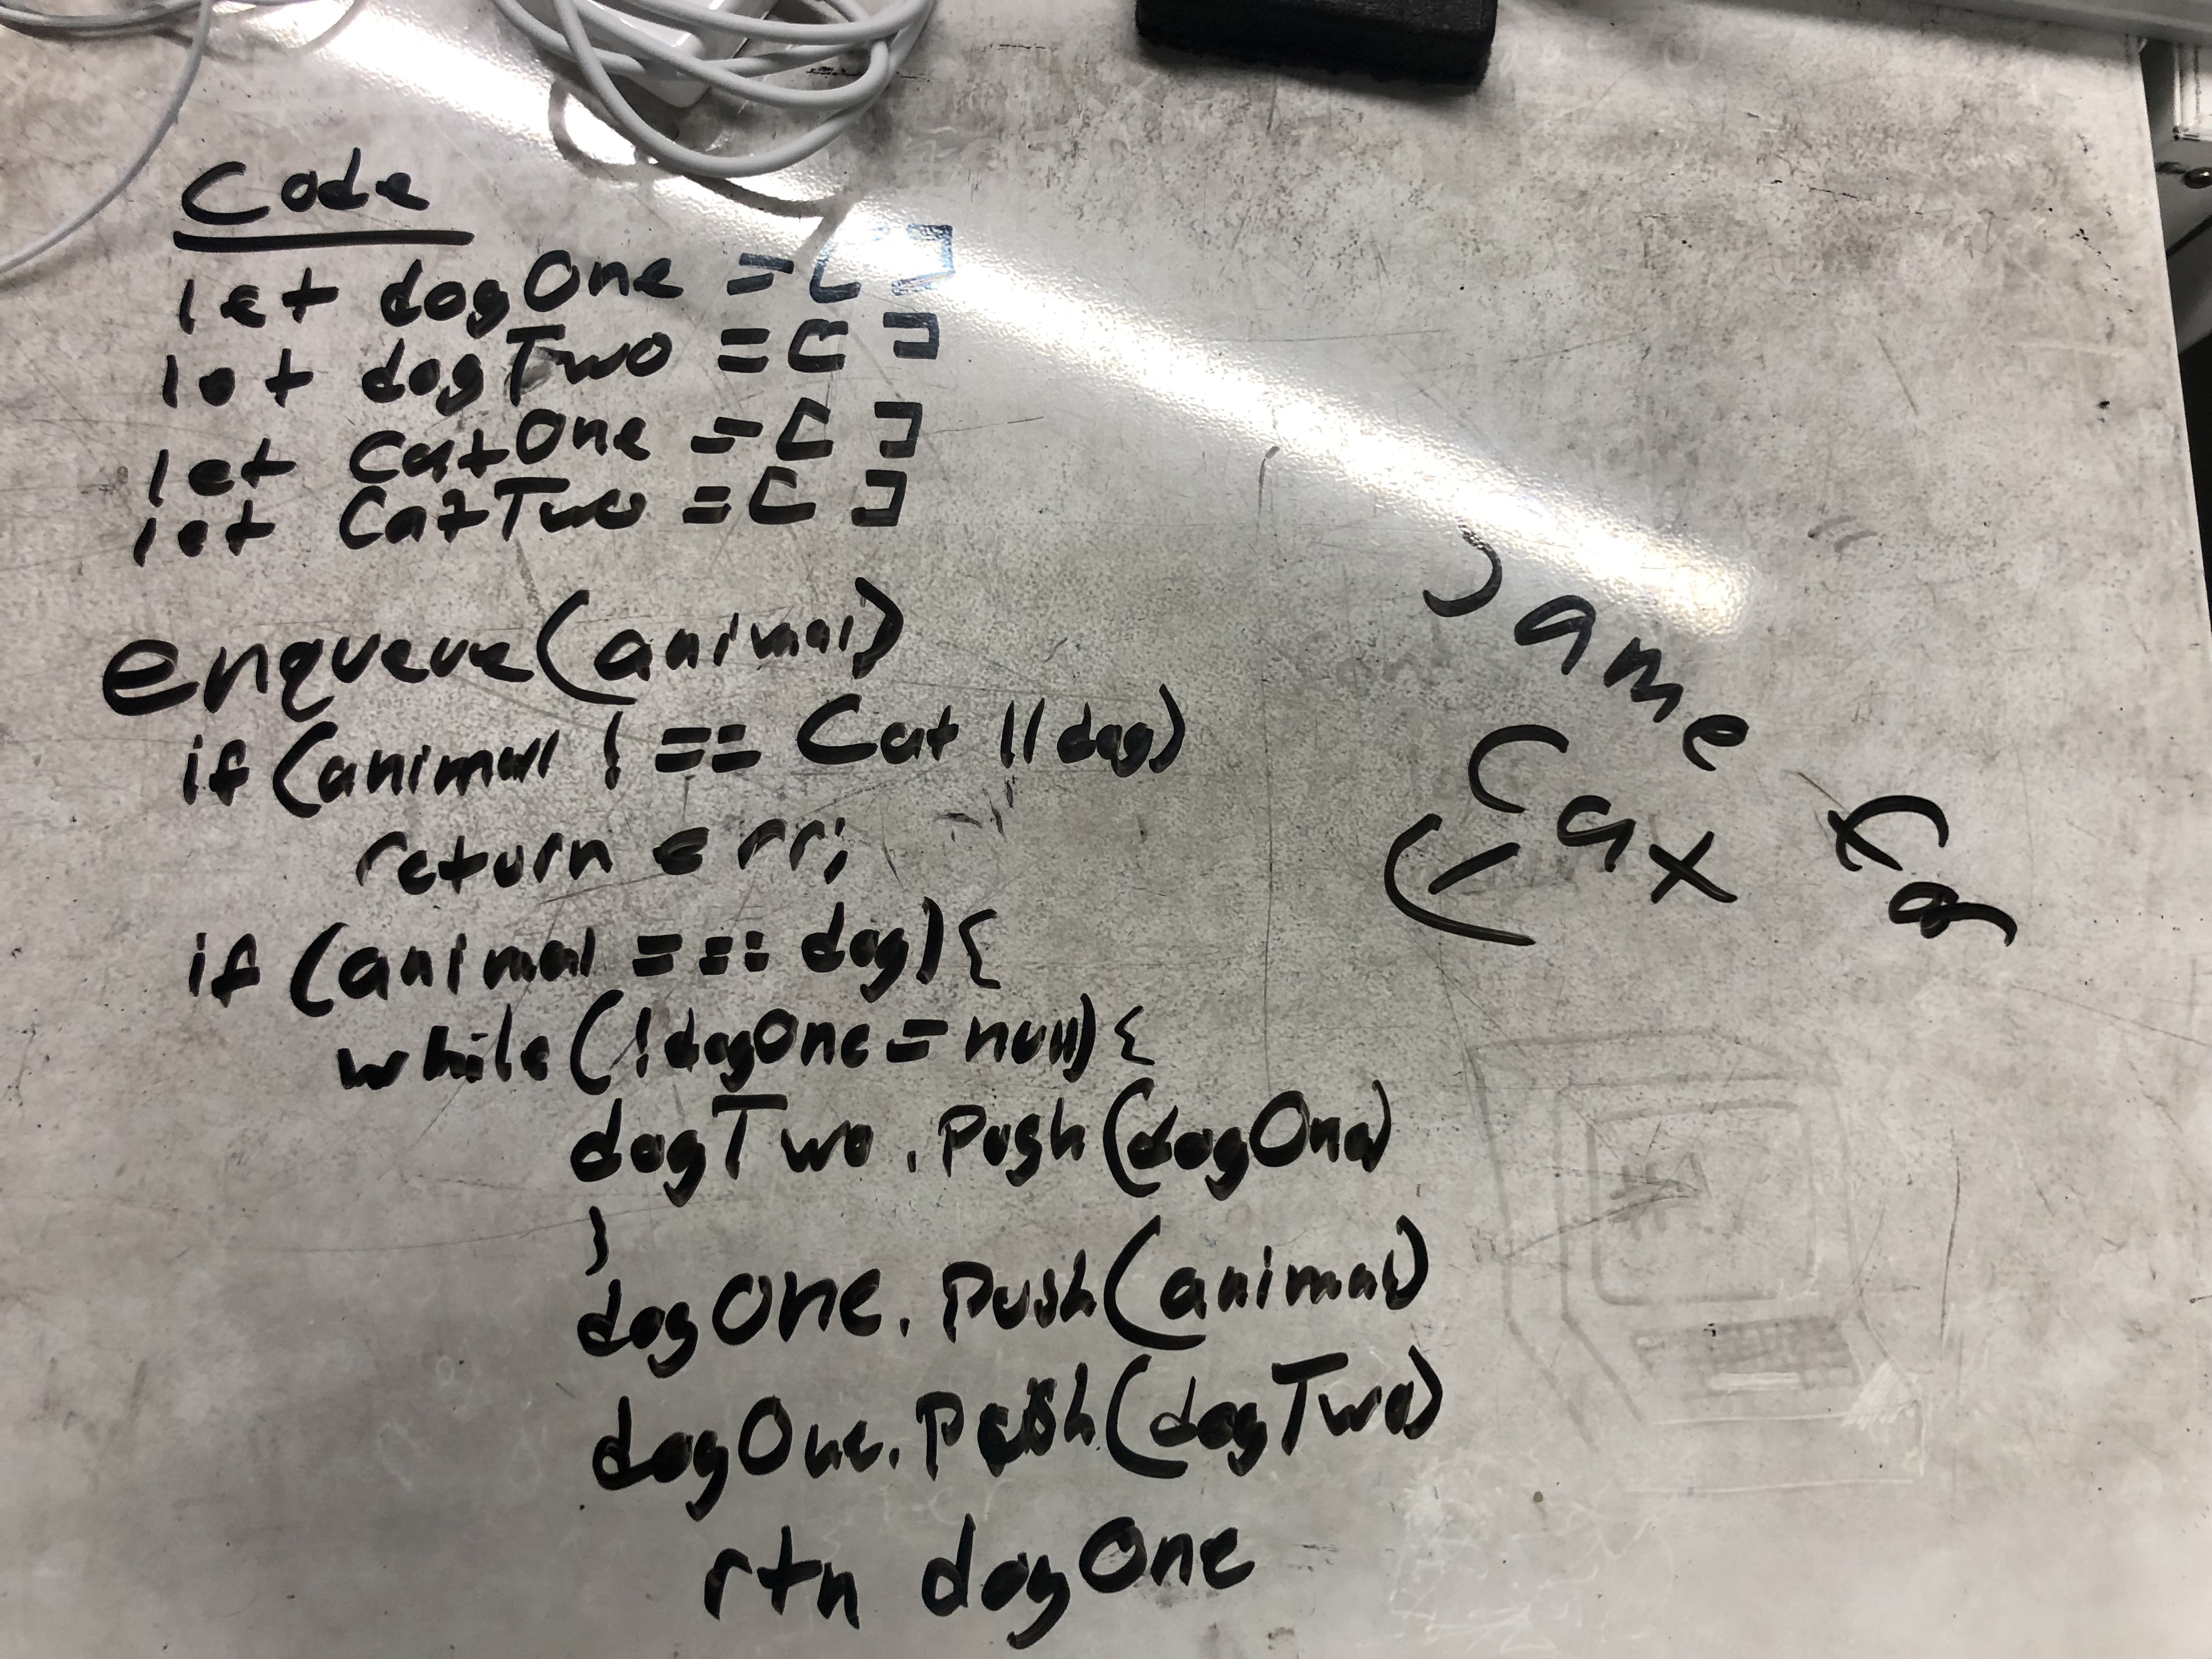 Code
let dogOne = [ ]
let dogTwo = [ ]
let CatOne = [ ]
let CatTwo = [ ]
enqueue(animal)
if (animal !== Cat || dog)
return err;
if (animal === dog) {
while (!dogOne = null) {
dogTwo.Push(dogOne)
}
dogOne.Push(animal)
dogOne.Push(dogTwo)
rtn dogOne
Same
for
Cat